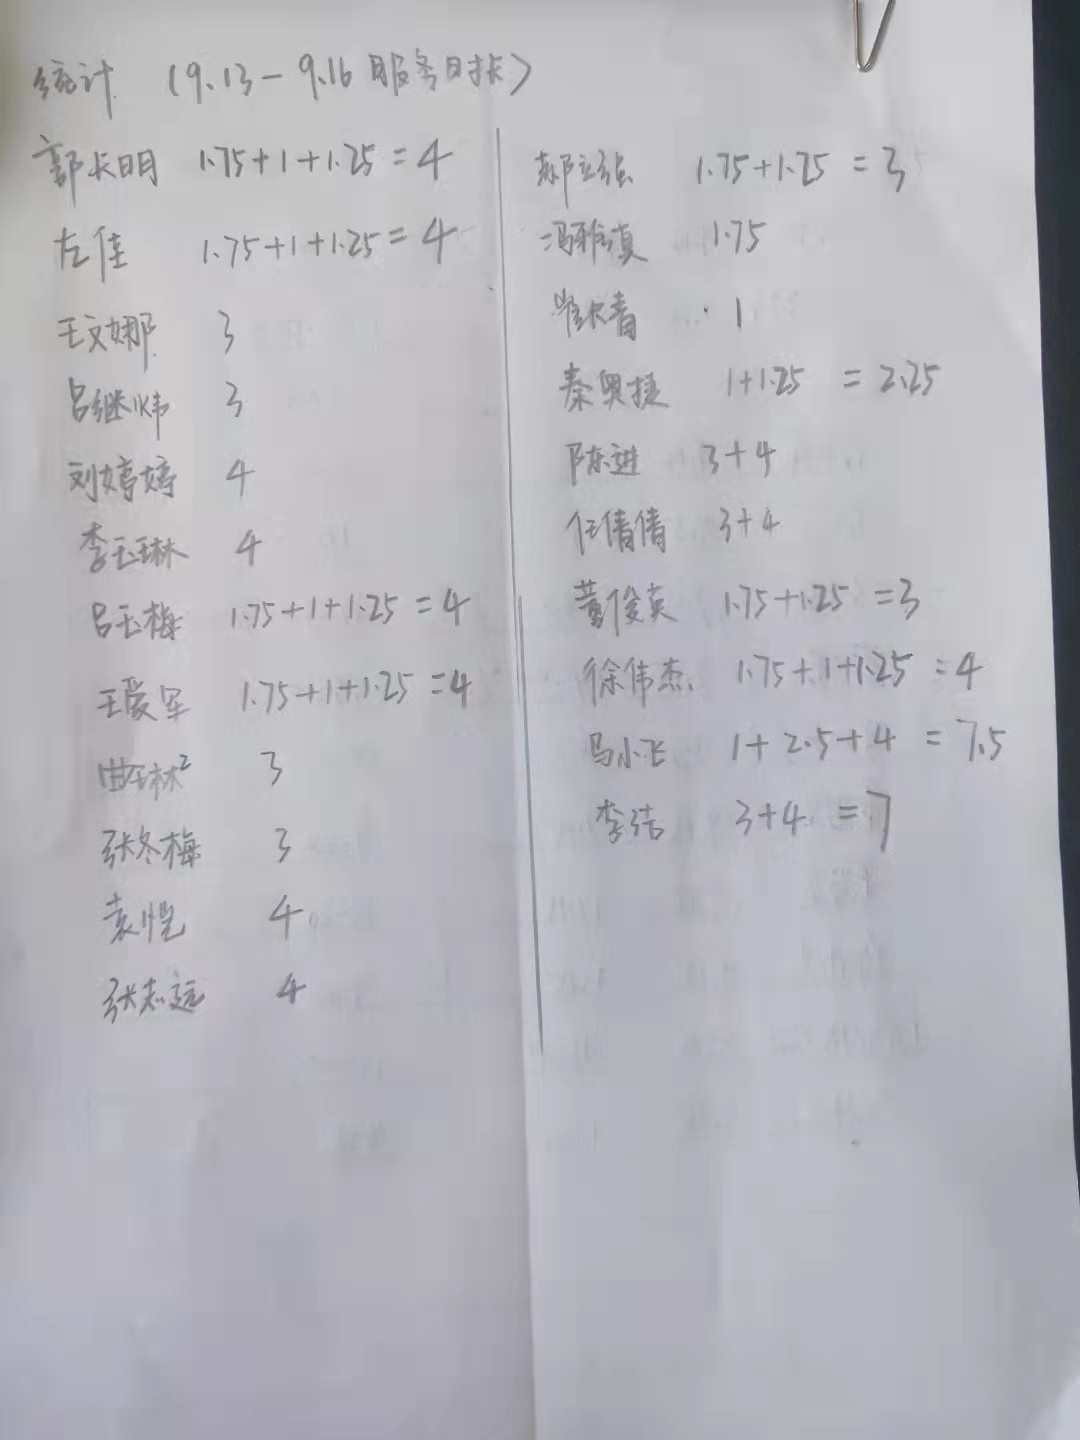 统计 (9.13-9.16服务时长)
郭长明 1.75+1+1.25=4
左佳 1.75+1+1.25=4
王文娜 3
吕继炜 3
刘婷婷 4
李玉琳 4
吕玉梅 1.75+1+1.25=4
王爱军 1.75+1+1.25=4
曲琳² 3
张冬梅 3
袁恺 4
张志远 4
郝立强 1.75+1.25=3
冯雅真 1.75
崔长青 1
秦奥捷 1+1.25=2.25
陈进 3+4
任倩倩 3+4
董俊英 1.75+1.25=3
徐伟杰 1.75+1+1.25=4
马小飞 1+2.5+4=7.5
李洁 3+4=7